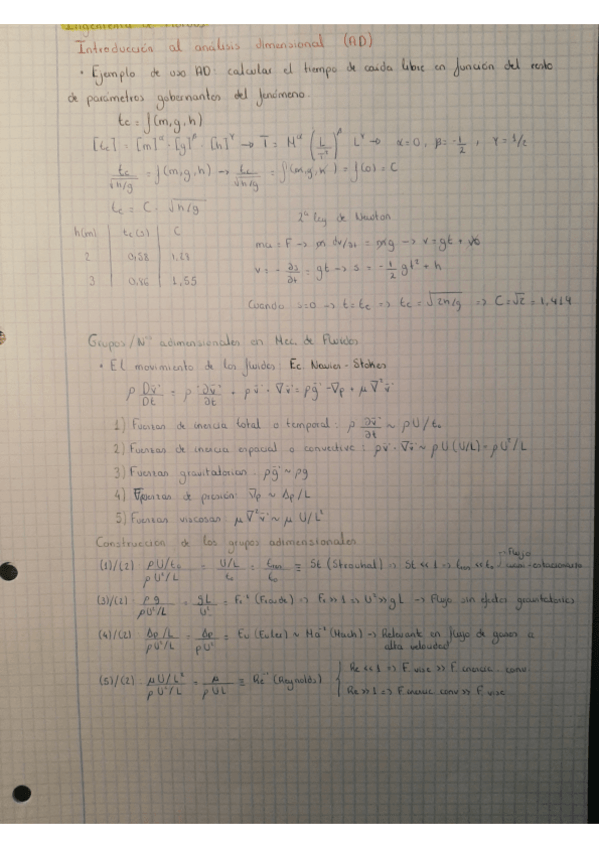 Ingeniería de Fluidos
Introducción al análisis dimensional (AD)
• Ejemplo de uso AD: calcular el tiempo de caída libre en función del resto
de parámetros gobernantes del fenómeno.
tc = f(m,g,h)
[tc] = [m]^α · [g]^β · [h]^γ → T = M^α (L/T²)^β L^γ → α=0, β=-1/2, γ=1/2
tc/√(h/g) = f(m,g,h) → tc/√(h/g) = f(m,g,h) = f(0) = C
tc = C · √(h/g)
2ª ley de Newton
h(m) tc(s) C
ma = F → m dv/dt = mg → v = gt + v0
2 0,58 1,28
v = - ∂s/∂t = gt → s = -1/2 gt² + h
3 0,86 1,55
Cuando s=0 → t=tc ⇒ tc = √(2h/g) ⇒ C=√2 = 1,414
Grupos/Nºˢ adimensionales en Mec. de Fluidos
• El movimiento de los fluidos: Ec. Navier-Stokes
ρ Dv/Dt = ρ ∂v/∂t + ρv·∇v = ρg - ∇p + μ∇²v
1) Fuerzas de inercia total o temporal: ρ ∂v/∂t ~ ρU/to
2) Fuerzas de inercia espacial o convectiva: ρv·∇v ~ ρU(U/L) = ρU²/L
3) Fuerzas gravitatorias: ρg ~ ρg
4) Fuerzas de presión: ∇p ~ Δp/L
5) Fuerzas viscosas: μ∇²v ~ μ U/L²
Construcción de los grupos adimensionales
→ Flujo
(1)/(2) (ρU/to)/(ρU²/L) = (L/U)/to = /to ≡ St (Strouhal) ⇒ St << 1 ⇒ << to / cuasi-estacionario
(3)/(2) ρg/(ρU²/L) = gL/U² = Fr⁻¹ (Froude) ⇒ Fr >> 1 ⇒ U² >> gL → Flujo sin efectos gravitatorios
(4)/(2) (Δp/L)/(ρU²/L) = Δp/ρU² = Eu (Euler) ~ Ma⁻² (Mach) → Relevante en flujo de gases a
alta velocidad
(5)/(2) (μU/L²)/(ρU²/L) = μ/ρUL ≡ Re⁻¹ (Reynolds) { Re << 1 ⇒ F. visc >> F. inercic. conv.
Re >> 1 ⇒ F. inercic. conv >> F. visc